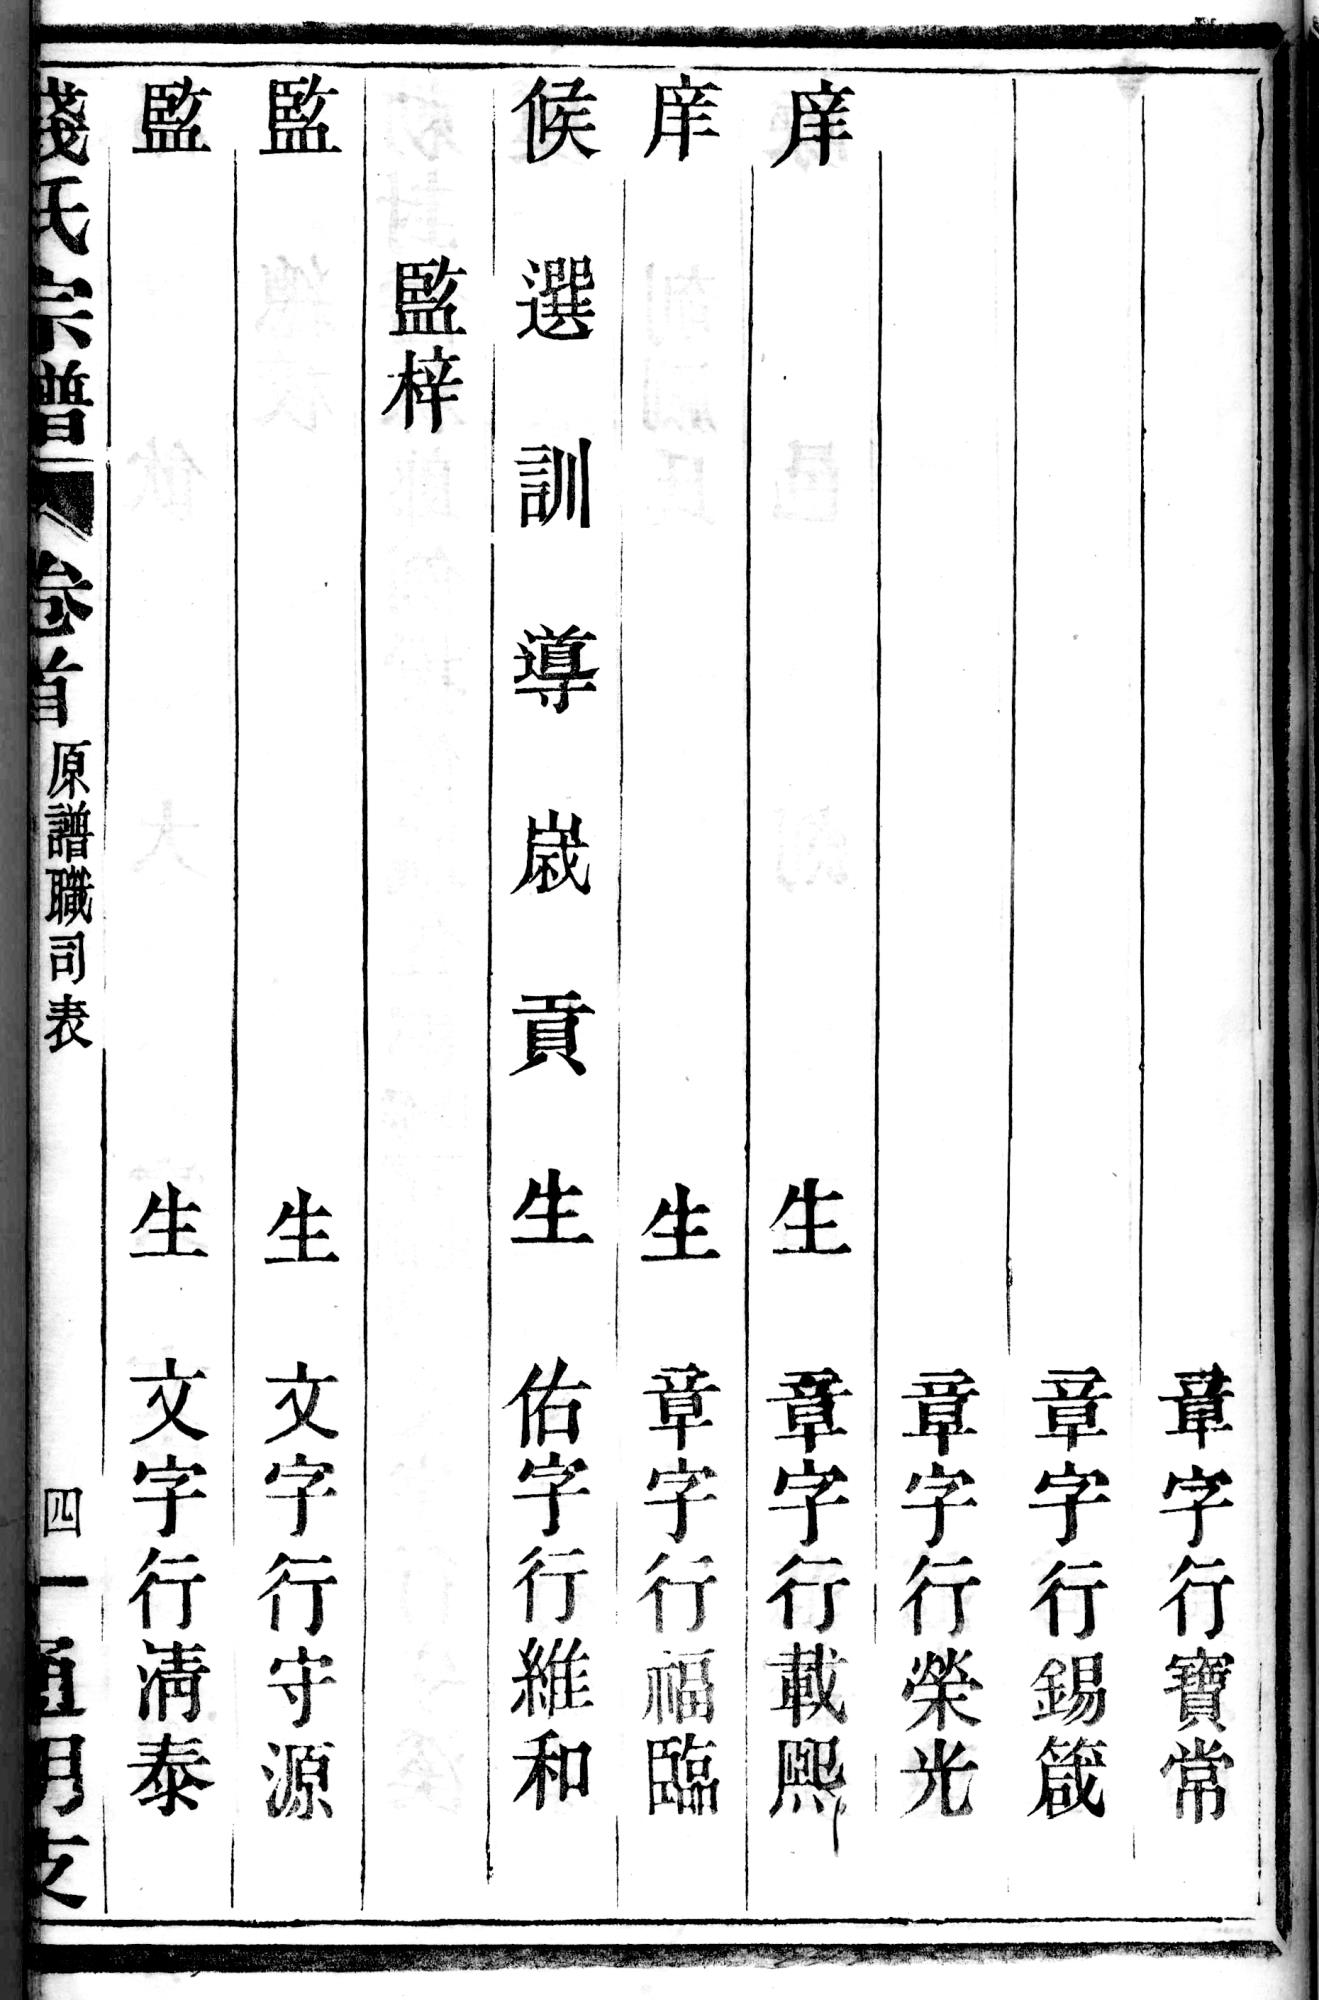 章字行寶常
章字行錫箴
章字行榮光
庠生章字行載熙
庠生章字行福臨
候選訓導歲貢生佑字行維和
監梓
監生文字行守源
監生文字行清泰
錢氏宗譜 卷首 原譜職司表 四 一 通明支